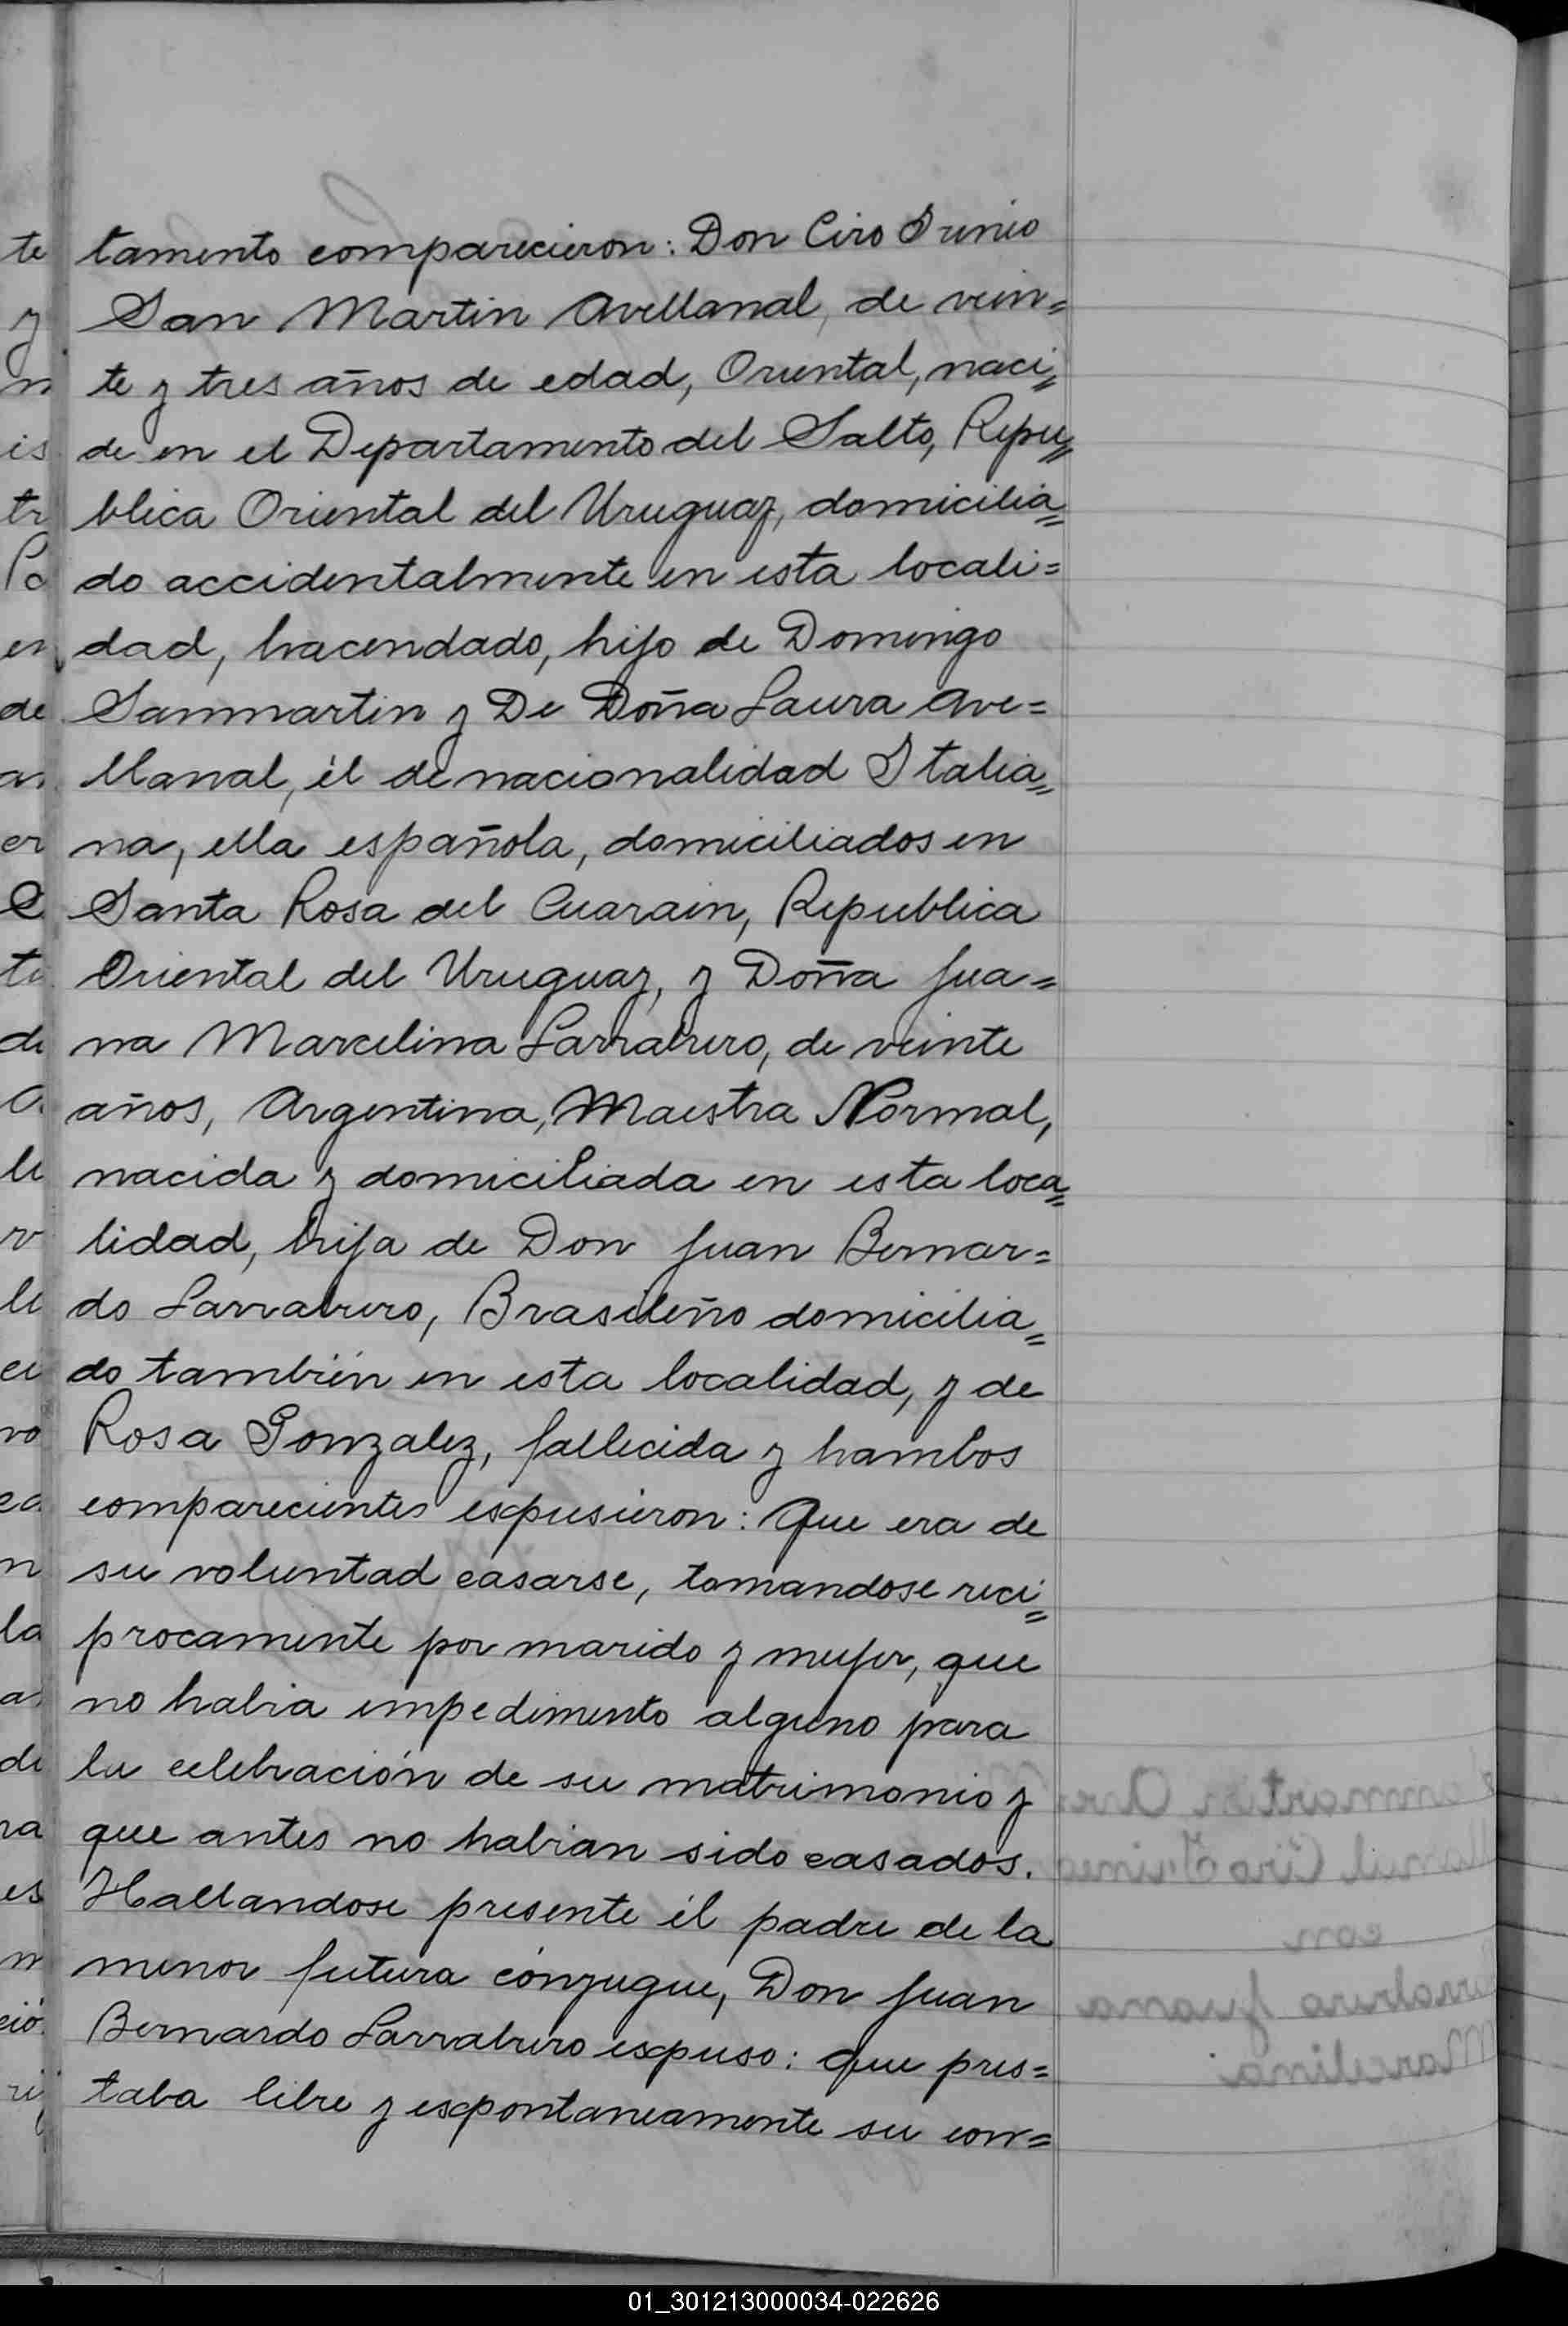 tamento comparecieron: Don Ciro Irineo
San Martin Avellanal, de vein=
te y tres años de edad, Oriental, naci=
de en el Departamento del Salto, Repu=
blica Oriental del Uruguay, domicilia=
do accidentalmente en esta locali=
dad, hacendado, hijo de Domingo
Sanmartin y De Doña Laura Ave=
llanal, él de nacionalidad Italia=
na, ella española, domiciliados en
Santa Rosa del Cuarain, Republica
Oriental del Uruguay, y Doña Jua=
na Marcelina Larraburo, de veinte
años, Argentina, Maestra Normal,
nacida y domiciliada en esta loca=
lidad, hija de Don Juan Bernar=
do Larraburo, Brasileño domicilia=
do también en esta localidad, y de
Rosa Gonzalez, fallecida y hambos
comparecientes expusieron: Que era de
su voluntad casarse, tomandose reci=
procamente por marido y mujer, que
no habia impedimento alguno para
la celebración de su matrimonio y
que antes no habian sido casados.
Hallandose presente él padre de la
menor futura cónyugue, Don Juan
Bernardo Larraburo expuso: que pres=
taba libre y expontaneamente su con=
01_301213000034-022626